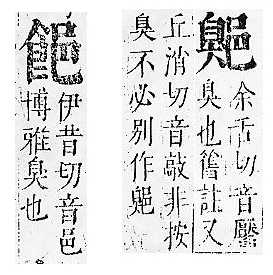 余舌切音
臭也舊註又
丘消切音敲非按
臭不必别作
伊昔切音邑
博雅臭也